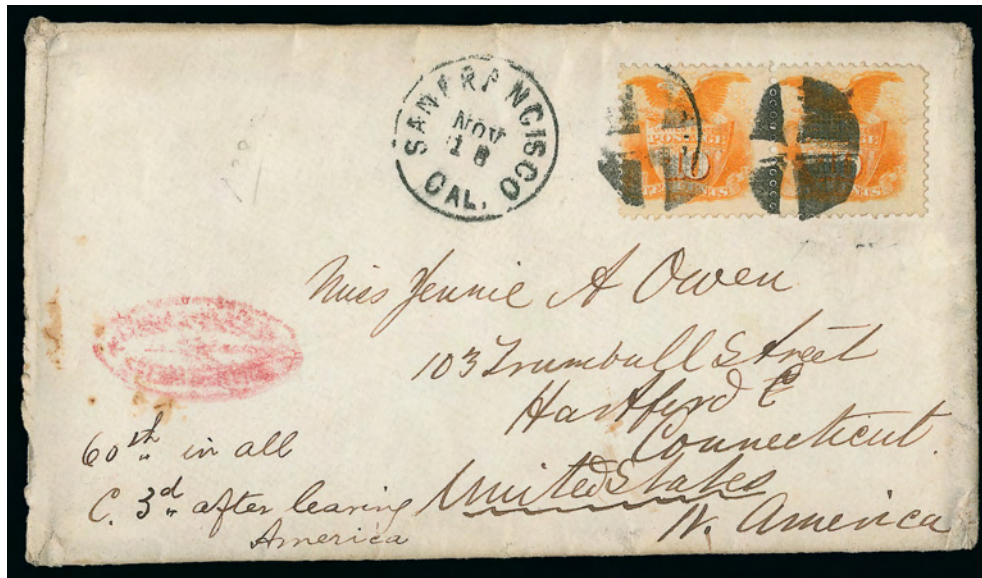 SAN FRANCISCO
NOV
18
CAL.
POSTAGE
10
Miss Jennie A Owen
103 Trumbull Street
Hartford
Connecticut.
United States
N. America
60th in all
C. 3d after leaving
America